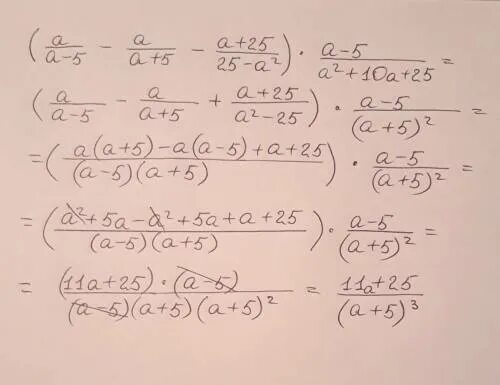 (a/(a-5) - a/(a+5) - (a+25)/(25-a²)) · (a-5)/(a²+10a+25) =
(a/(a-5) - a/(a+5) + (a+25)/(a²-25)) · (a-5)/(a+5)² =
= ((a(a+5)-a(a-5)+a+25)/((a-5)(a+5))) · (a-5)/(a+5)² =
= ((a²+5a-a²+5a+a+25)/((a-5)(a+5))) · (a-5)/(a+5)² =
= ((11a+25)·(a-5))/((a-5)(a+5)(a+5)²) = (11a+25)/(a+5)³